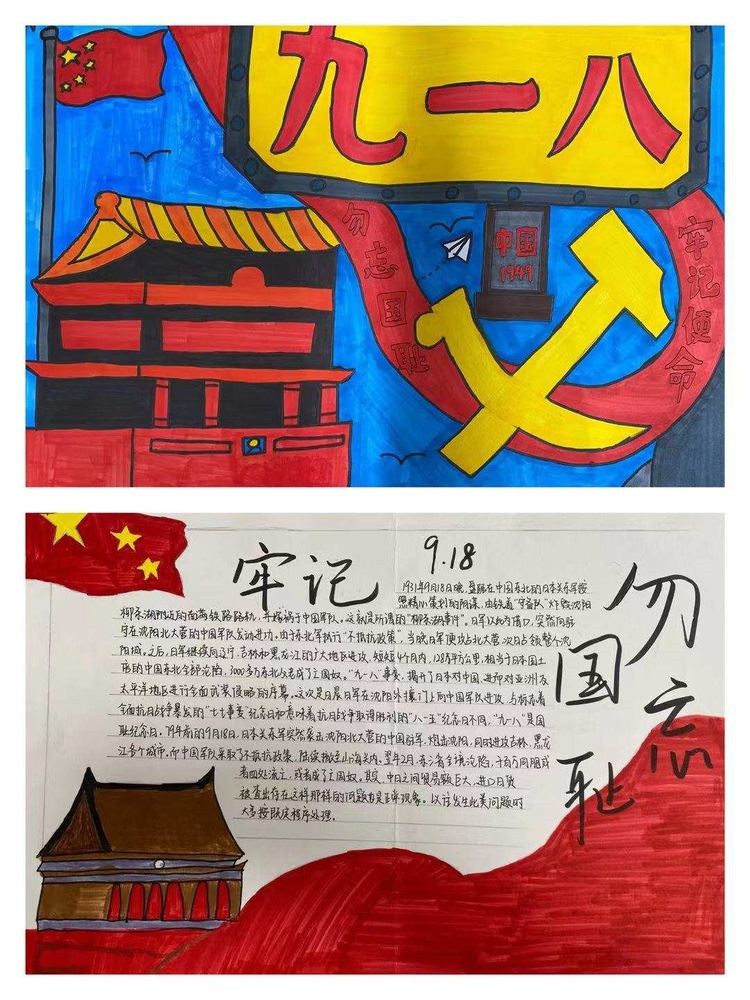 九一八
勿忘国耻
中国
1949
牢记使命
牢记
9.18
勿忘
国耻
1931年9月18日晚,盘踞在中国东北的日本关东军按
照精心策划的阴谋,由铁道"守备队"炸毁沈阳
柳条湖附近的南满铁路路轨,并嫁祸于中国军队。这就是所谓的"柳条湖事件"。日军以此为借口,突然向驻
守在沈阳北大营的中国军队发动进攻。由于东北军执行"不抵抗政策",当晚日军便攻占北大营,次日占领整个沈
阳城。之后,日军继续向辽宁,吉林和黑龙江的广大地区进攻,短短4个月内,128万平方公里,相当于日本国土
倍的中国东北全部沦陷,3000多万东北父老成了亡国奴。"九一八"事变,揭开了日本对中国,进而对亚洲及
太平洋地区进行全面武装侵略的序幕。这次是日晨日军在沈阳外攘门上向中国军队进攻,与标志着
全面抗日战争暴发的"七七事变"纪念日和意味着抗日战争取得胜利的"八一五"纪念日不同,"九一八"是国
耻纪念日。79年前的9月18日,日本关东军突然袭击沈阳北大营的中国驻军,炮击沈阳,同时进攻吉林,黑龙
江多个城市,而中国军队采取了不抵抗政策,陆续撤至山海关内。翌年2月,东三省全境沦陷,千百万同胞或
者四处流亡,或者成了亡国奴。耻,中日之间贸易额巨大,进口日货
被查出存在这样那样的问题也是正常现象。以往发生此类问题时
大多按既定程序处理。